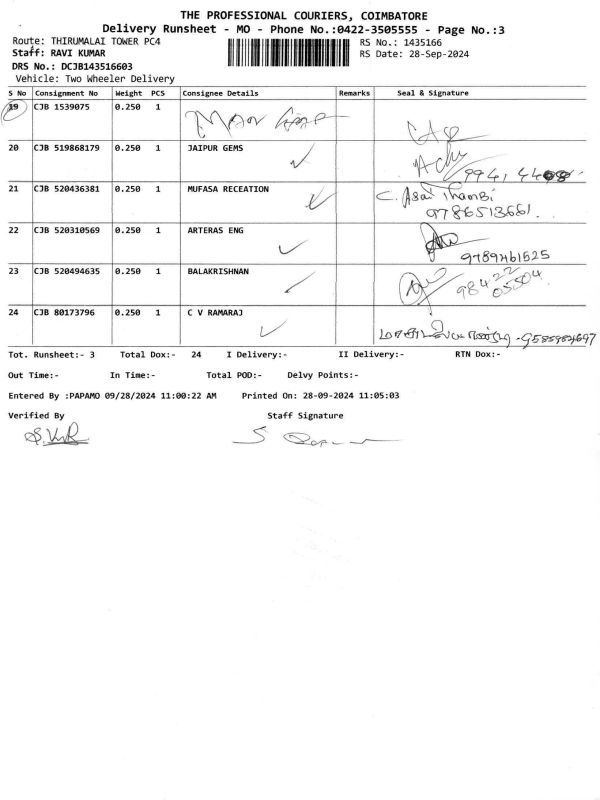 THE PROFESSIONAL COURIERS, COIMBATORE
Delivery Runsheet - MO - Phone No.:0422-3505555 - Page No.:3
Route: THIRUMALAI TOWER PC4 RS No.: 1435166
Staff: RAVI KUMAR RS Date: 28-Sep-2024
DRS No.: DCJB143516603
Vehicle: Two Wheeler Delivery
S No Consignment No Weight PCS Consignee Details Remarks Seal & Signature
19 CJB 1539075 0.250 1
20 CJB 519868179 0.250 1 JAIPUR GEMS
21 CJB 520436381 0.250 1 MUFASA RECEATION C. Asai Thambi
9786513661
22 CJB 520310569 0.250 1 ARTERAS ENG
9789461525
23 CJB 520494635 0.250 1 BALAKRISHNAN 98422
05504
24 CJB 80173796 0.250 1 C V RAMARAJ
Tot. Runsheet:- 3 Total Dox:- 24 I Delivery:- II Delivery:- RTN Dox:-
Out Time:- In Time:- Total POD:- Delvy Points:-
Entered By :PAPAMO 09/28/2024 11:00:22 AM Printed On: 28-09-2024 11:05:03
Verified By Staff Signature